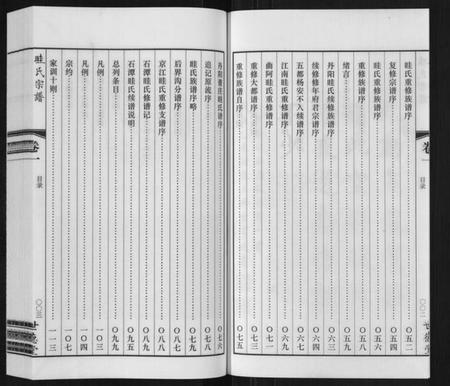 眭氏重修族谱序 〇五二
复修宗谱序 〇五四
眭氏重修族谱序 〇五六
重修族谱序 〇五七
绪言 〇五九
丹阳眭氏续修族谱序 〇六三
续修修年府君宗谱序 〇六四
五都杨安不入续谱序 〇六六
江南眭氏重修谱序 〇六九
曲阿眭氏重修谱序 〇七一
重修大都谱序 〇七三
重修族谱自序 〇七五
卷一
目录
追记原流序 〇七八
眭氏族谱序略 〇八五
后界沟分谱序 〇八七
京江眭氏重修支谱序 〇八八
石潭眭氏修谱记 〇八九
石潭眭氏续谱说明 〇九五
总列条目 〇九九
凡例 一〇三
凡例 一〇四
宗约 一〇七
家训十则 一一三
眭氏宗谱
卷一
目录
〇〇三